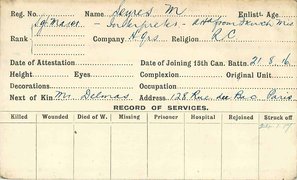 Reg. No. Name. Seyres M Enlistt. Age
Interpreter - att from French Mis
Rank Company H.Qrs Religion R.C
Date of Attestation Date of Joining 15th Can. Battn. 21.8.16
Height Eyes Complexion Original Unit
Decorations Occupation
Next of Kin Mr Delmas Address 128 Rue du Bac Paris
RECORD OF SERVICES.
Killed Wounded Died of W. Missing Prisoner Hospital Rejoined Struck off